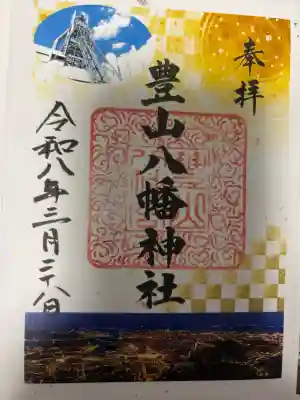 奉拝
豊山八幡神社
令和八年三月二十八日